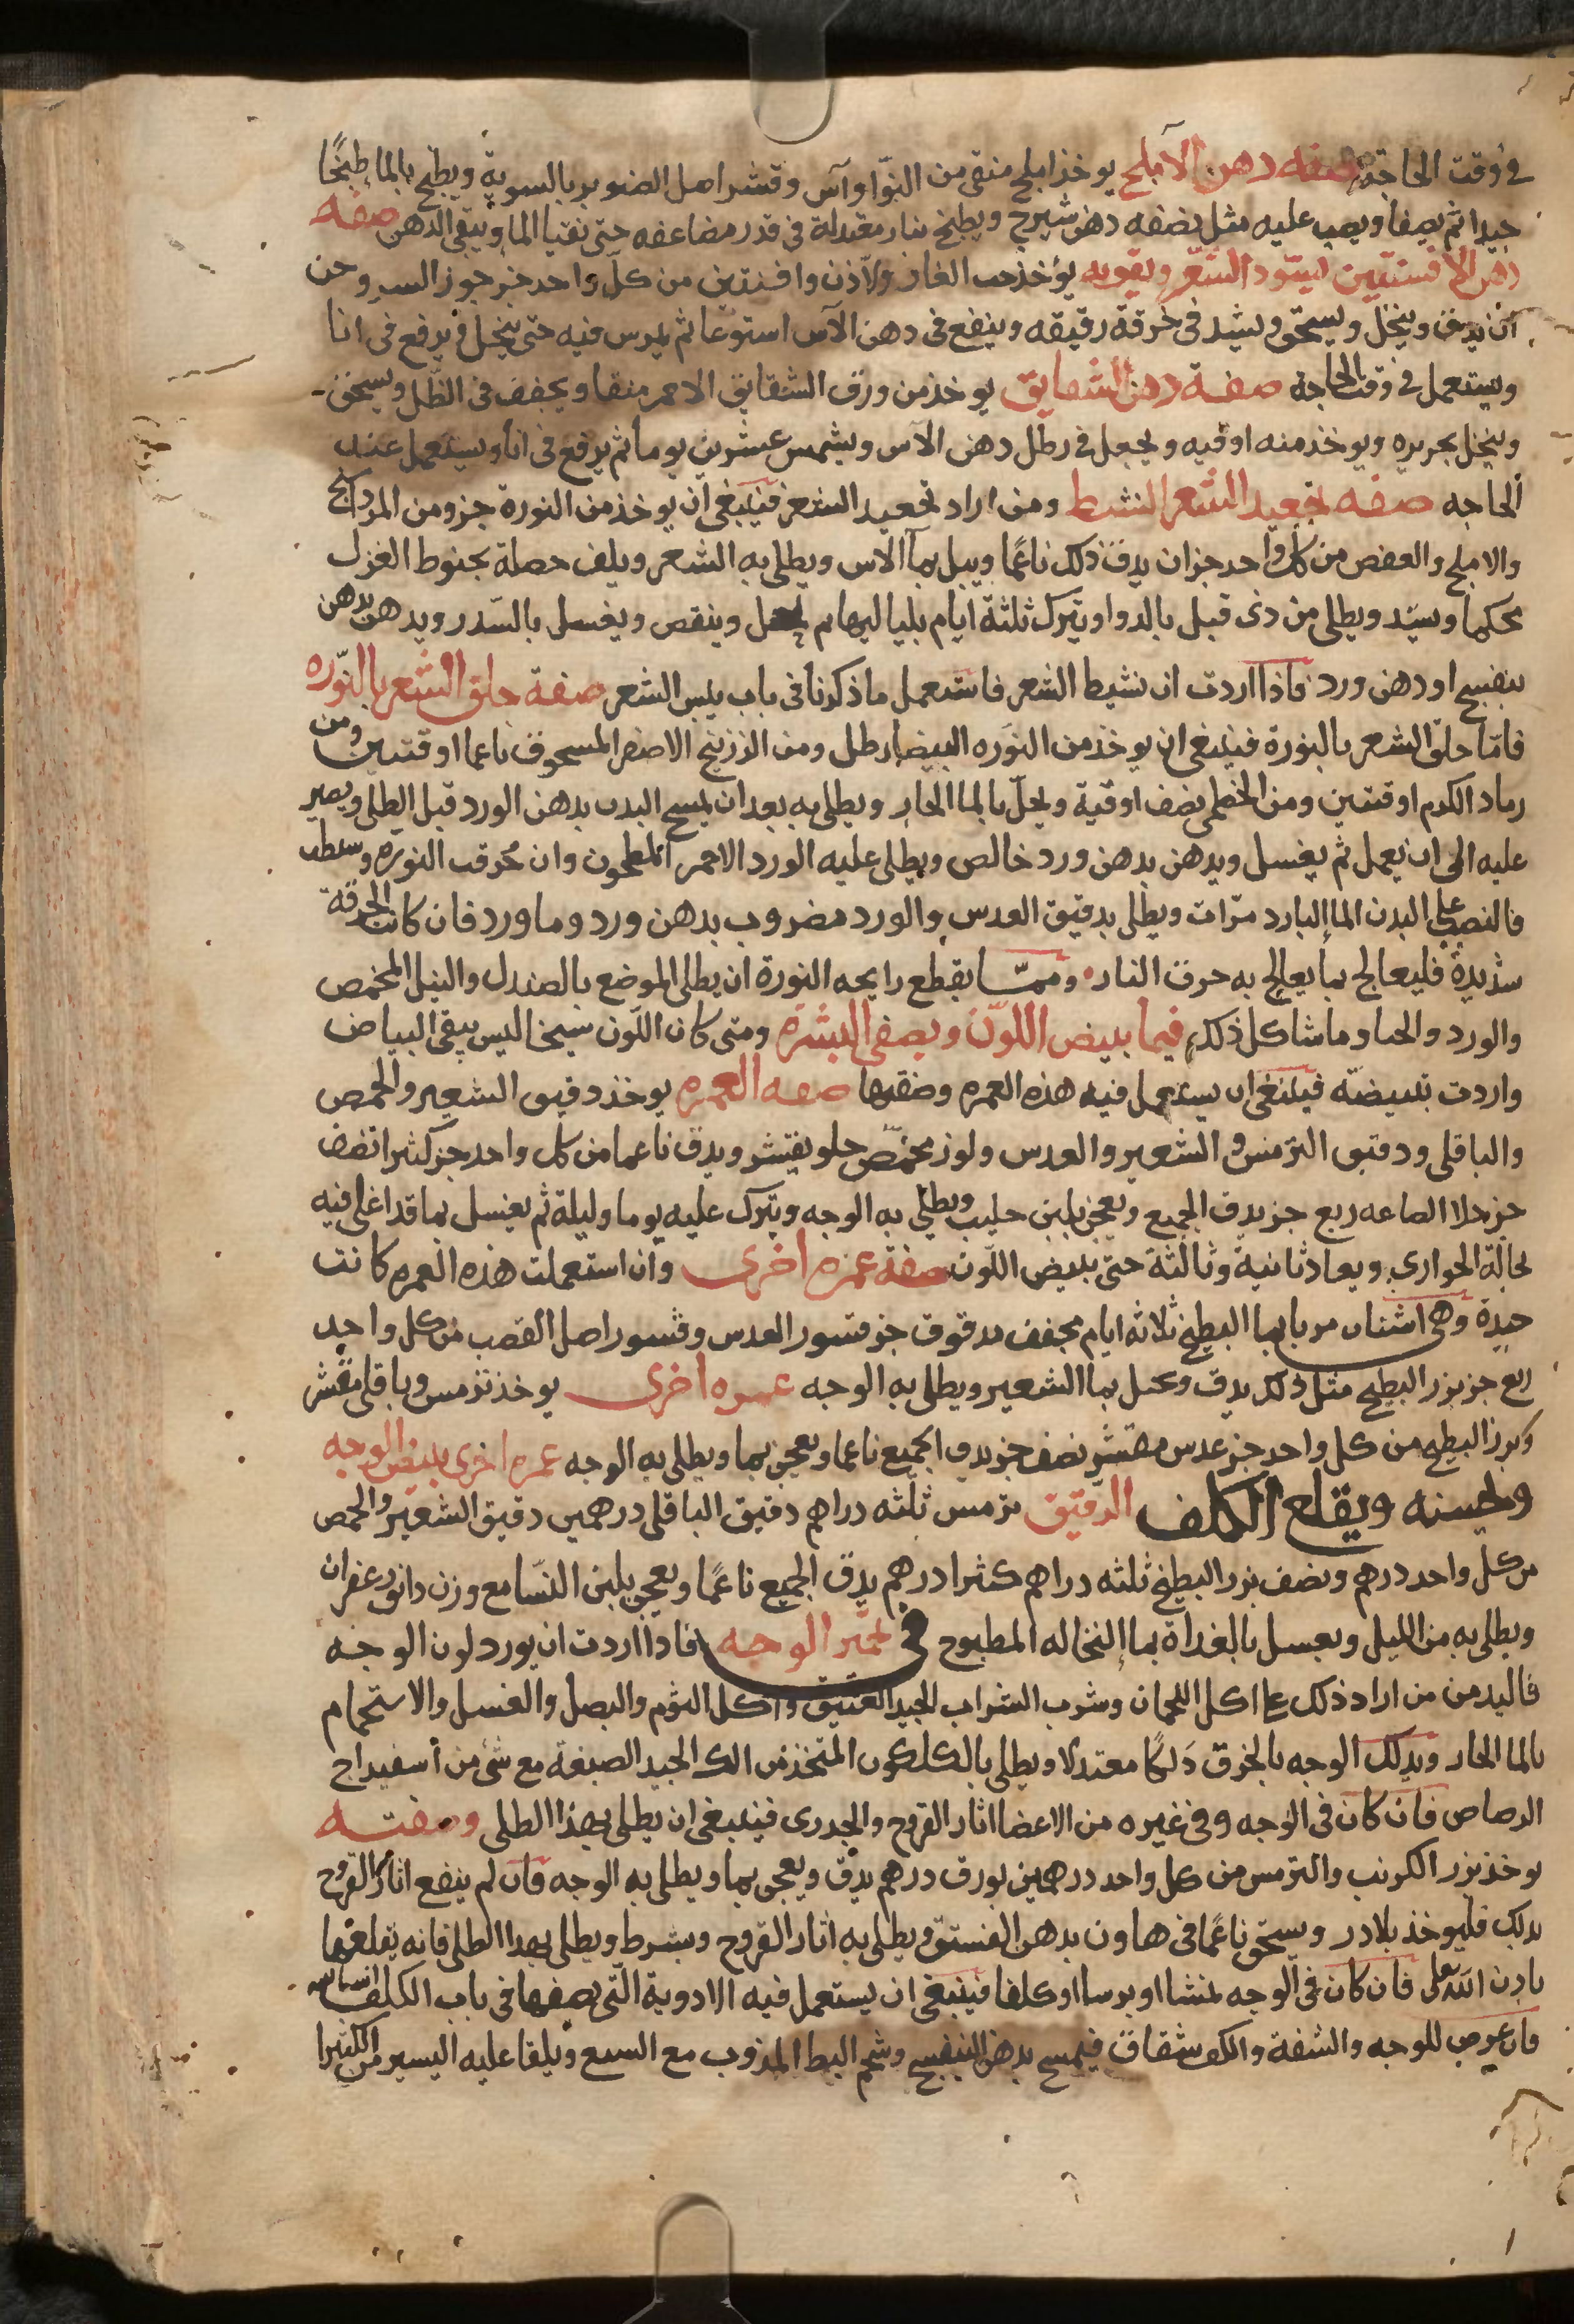 في وقت الحاجة صفه دهن الآملج يوخذ املج منقى من النوا وآس وقشر اصل الصنوبر بالسوية ويطبخ بالماء طبخًا
جيدا ثم يصفا ويصب عليه مثل نصفه دهن شيرج ويطبخ بنار معتدلة في قدر مضاعفه حتى تفنا الما ويبقى الدهن صفه
دهن الافسنتين ليسّود الشعر ويقويه يؤخذ حب الغار ولاذن وافسنتين من كل واحد جز جوز السرو جزى
ان يدق وينخل ويسحق ويشد في خرقة رقيقه وينقع في دهن الآس اسبوعا ثم يمرس فيه حتى ينحل ويرفع في انا
ويستعمل في وقت الحاجة صفة دهن الشقايق يوخذ من ورق الشقايق الاحمر منقا ويجفف في الظل ويسحق
وينخل بحريره ويوخذ منه اوقيه ويجعل في رطل دهن الاس ويشمس عشرين يوما ثم يرفع في انا ويستعمل عند
الحاجه صفه تجعيد الشعر النشط ومن اراد تجعيد الشعر فينبغى ان يوخذ من النورة جزو ومن المرداسنج
والاملج والعفص من كل واحد جزان يدق ذلك ناعمًا ويبل بمآ الاس ويطلى به الشعر ويلف حصلة بخيوط الغزل
محكما ويشد ويطلى من ذى قبل بالدوا ويترك ثلثة ايام بلياليها ثم يحل وينقص ويغسل بالسّدر ويدهن بدهن
بنفسج او دهن ورد فاذا اردت ان نشيط الشعر فاستعمل ما ذكرنا في باب يلبس الشعر صفة حلق الشعر بالنّوره
فامّا حلق الشعر بالنورة فينبغى ان يوخذ من النوره البيضا رطل ومن الزرنيخ الاصفر المسحوق ناعما اوقتين ومن
رماد الكرم اوقتين ومن الخطمى نصف اوقية ويحلّ بالما الحار ويطلى به بعد ان يمسح البدن بدهن الورد قبل الطلى ويصير
عليه الى ان يعمل ثم يغسل ويدهن بدهن ورد خالص ويطلى عليه الورد الاحمر المطحون وان حُرقت النوره وسطت
فالنصب على البدن الما البارد مرّات ويطلى بدقيق العدس والورد مضروب بدهن ورد وما ورد فان كانت الحرقة
شديدة فليعالج بما يعالج به حرق النار وممّا يقطع رايحه النورة ان يطلى الموضع بالصندل والنيل المخمص
والورد والحنا وما شاكل ذلك فيما يبيض اللوّن ويصفى البشرة ومتى كان اللّون سبخا ليس بنقى البياض
واردت تبييضه فينبغى ان يستعمل فيه هذه العمره وصفتها صفه العمره يوخذ دقيق الشعير والحمص
والباقلى ودقيق الترمس والشعير والعدس ولوز محمّص حلو يقشر ويدق ناعما من كل واحد جز كثيرا نصف
جز حلا الصاعه ربع جز يدق الجميع ويعجن بلبن حليب ويطلى به الوجه ويترك عليه يوما وليلة ثم يغسل بما قد اغلى فيه
نخالة الحوارى ويعاد ثانية وثالثة حتى يبيض اللّون صفة عمره اخرى وان استعملت هذه العمره كانت
جيدة وهى اشنان مربا بما البطيخ ثلاثه ايام مجفف مدقوق جز قشور العدس وقشور اصل القصب من كل واحد
ربع جز بزر البطيخ مثل ذلك يدق ويحل بما الشعير ويطلى به الوجه عمره اخرى يوخذ ترمس وباقلى مقشر
وبزر البطيخ من كل واحد جز عدس مقشر نصف جز يدق الجميع ناعما ويعجن بما ويطلى به الوجه عمره اخرى يبيض الوجه
ويحسنه ويقلع الكلف الدقيق ترمس ثلثه دراهم دقيق الباقلى درهمين دقيق الشعير والحمص
من كل واحد درهم ونصف بزر البطيخ ثلثه دراهم كثرا درهم يدق الجميع ناعمًا ويعجن بلبن النسّا مع وزن دانق زعفران
ويطلى به من الليل ويغسل بالغداة بما النخاله المطبوخ في تحمّر الوجه فاذا اردت ان يورد لون الوجه
فاليدمن من اراد ذلك على اكل اللحمان وشرب الشراب الجيد العتيق واكل الثوم والبصل والعسل والاستحمام
بالما الحار ويدلك الوجه بالخرق دَلكًا معتدلا ويطلى بالكلكون المتخذ من اللك الجيد الصبغة مع شئ من أسفيداج
الرصاص فان كان في الوجه وفى غيره من الاعضا اثار القروح والجدرى فينبغى ان يطلى بهذا الطلى وصفته
يوخذ بزر الكرنب والترمس من كل واحد درهمين بورق درهم يدق ويعجن بما ويطلى به الوجه فان لم ينفع اثار القروح
بذلك فليوخذ بلادر ويسحق ناعمًا في هاون بدهن الفستق ويطلى به اثار القروح ويشرط ويطلى بهذا الطلى فانه يقلعها
باذن الله تعلى فان كان في الوجه نمشا او برسا او كلفا فينبغى ان يستعمل فيه الادوية الّتى نصفها في باب الكلف
فان عرض للوجه والشفة والكف شقاق فيمسح بدهن البنفسج وشحم البط المذوب مع السمع ويلقا عليه اليسير من الكثيرا